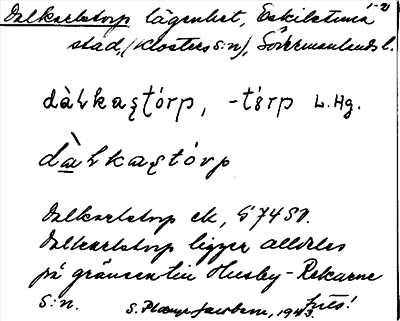 Dalkarlstorp lägenhet, Eskilstuna 1-21
stad, (Klosters s:n), Södermanlands l.
dàḷkaʂtórp, -tórp L. Hg.
dàḷkaʂtórp
Dalkarlstorp ek, G 74 SV.
Dalkarlstorp ligger alldeles
på gränsen till Husby-Rekarne
s:n. 1943.